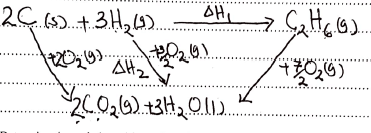 2C(s) + 3H₂(g) ΔH₁ C₂H₆(g)
+2O₂(g) ΔH₂ +3/2O₂(g) +7/2O₂(g)
2CO₂(g) + 3H₂O(l)